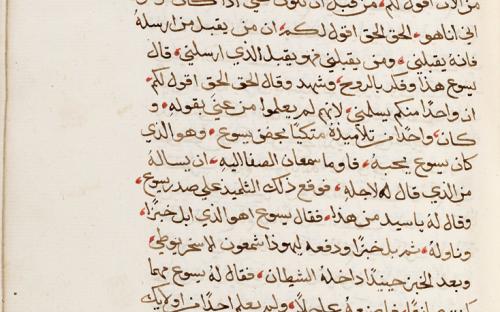 من الان اقول لكم • من قبل ان يكون حتي اذا كان
اني انا هو • الحق الحق اقول لكم • ان من يقبل من ارسله
فانه يقبلني • ومن يقبلني فهو يقبل الذي ارسلني • قال
يسوع هذا وقلق بالروح • وشهد وقال الحق الحق اقول لكم •
ان واحدًا منكم يسلمني • لانهم لم يعلموا من عني بقوله • و
كان • واحدًا من تلاميذه متكيًا بحضن يسوع • وهو الذي
كان يسوع يحبه • فاوما سمعان الصفا اليه • ان يساله
من الذي قال له لاجله • فوقع ذلك التلميد علي صدر يسوع •
وقال له يا سيد من هذا • فقال يسوع هو الذي ابل خبزًا •
وناوله • ثم بل خبزًا ودفعه ليهوذا شمعون الاسخريوطي •
وبعد الخبز حينيدًا داخله الشيطان • فقال له يسوع مهما
عاجلًا • ولم يعلم احدًا من اولايك